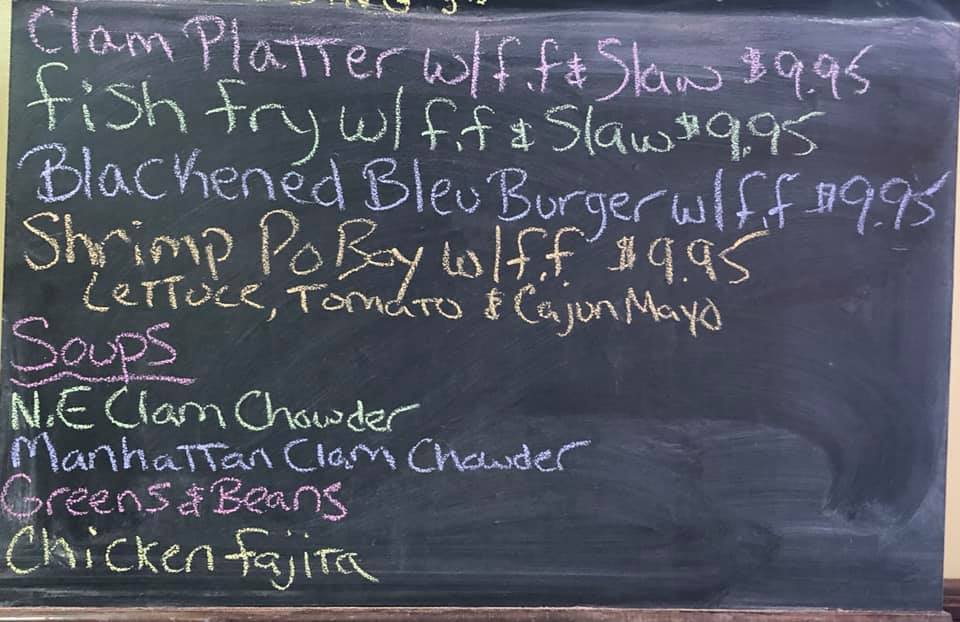 Clam Platter w/f.f & Slaw $9.95
fish fry w/ f.f & Slaw $9.95
Blackened Bleu Burger w/f.f $9.95
Shrimp Po Boy w/f.f $9.95
Lettuce, Tomato & Cajun Mayo
Soups
N.E Clam Chowder
Manhattan Clam Chowder
Greens & Beans
Chicken fajita